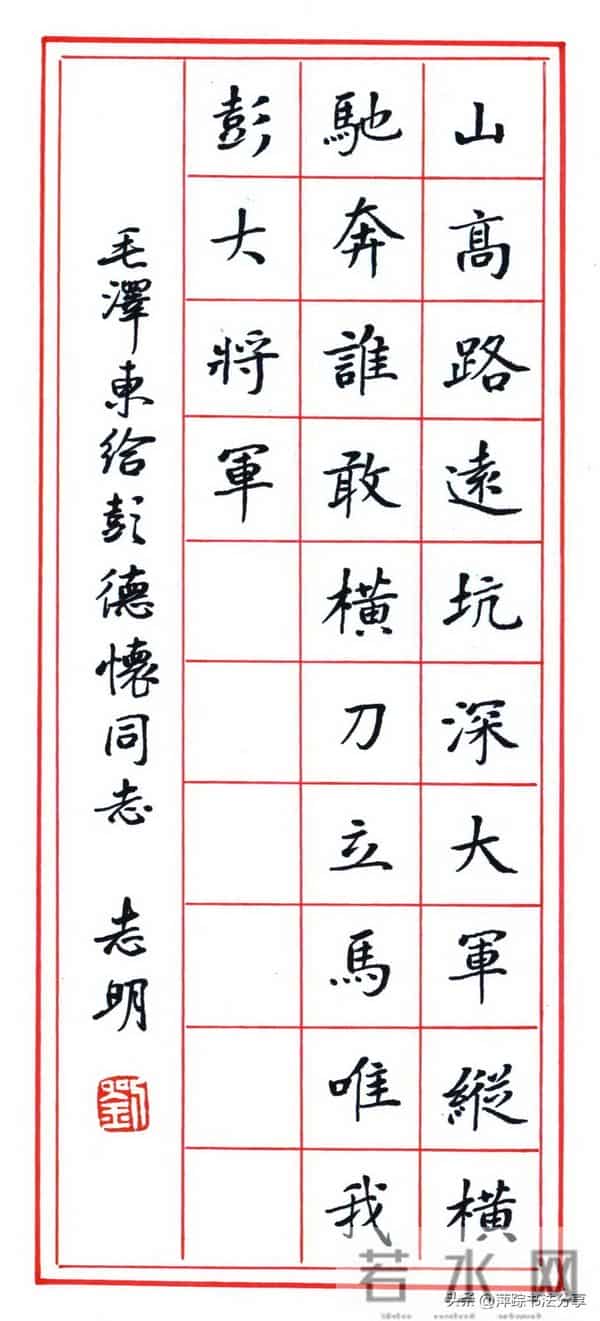 山高路遠坑深大軍縱橫
馳奔誰敢橫刀立馬唯我
彭大將軍
毛澤東給彭德懷同志 志明
劉
若水网
头条@萍踪书法分享